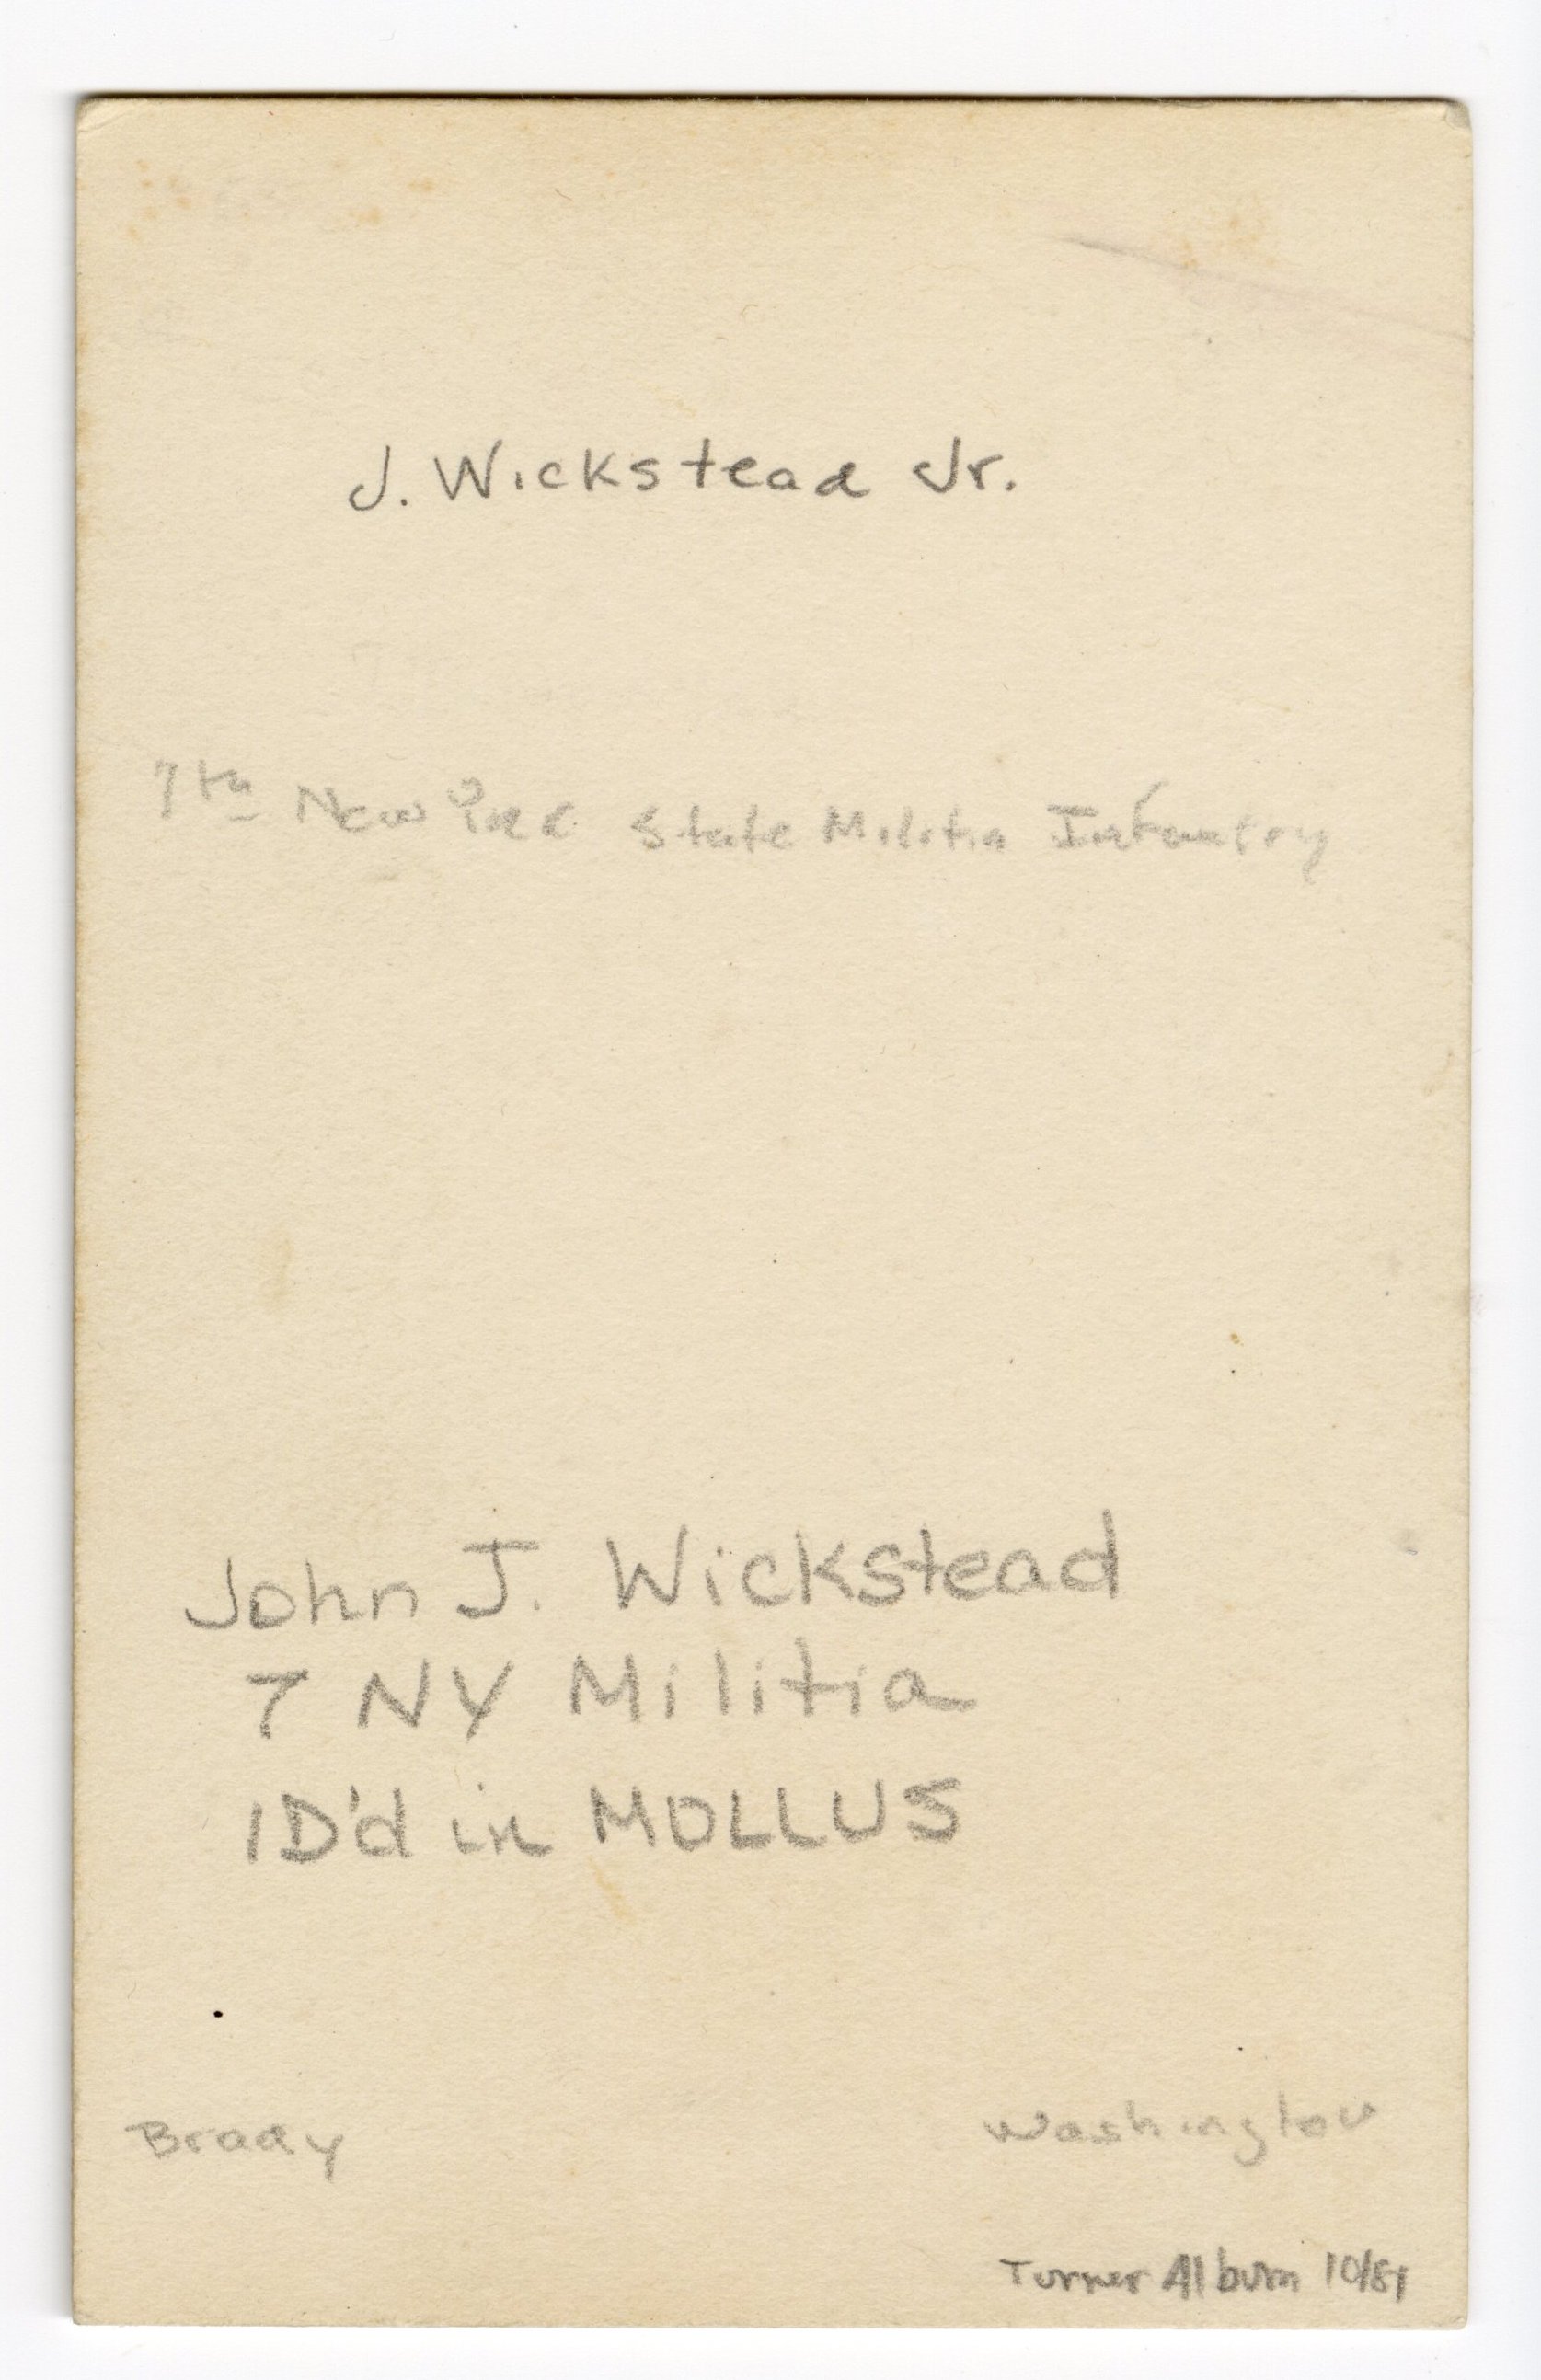 J. Wickstead Jr.
7th New York State Militia Infantry
John J. Wickstead
7 NY Militia
ID'd in MOLLUS
Brady Washington
Turner Album 10/81